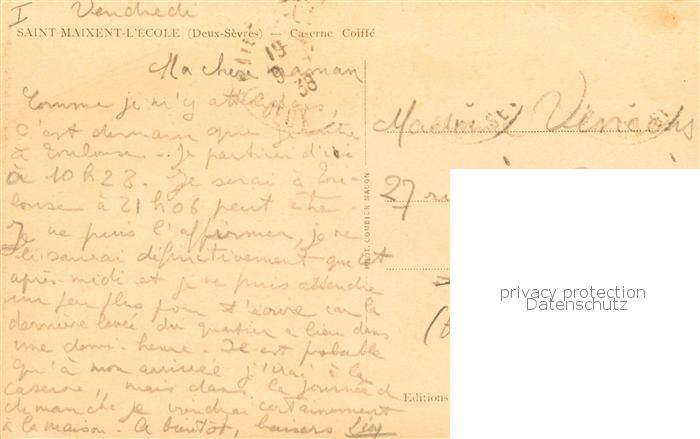 I Vendredi
SAINT-MAIXENT-L'ÉCOLE (Deux-Sèvres) — Caserne Coiffé
19
9
38
Ma chère maman
Comme je m'y attendais,
c'est demain que je rentre
à Toulouse. Je partirai d'ici
à 10 h 28. Je serai à Tou-
louse à 21 h 06 peut être.
Je ne puis l'affirmer, je ne
le saurai définitivement que cet
après-midi et je ne puis attendre
un peu plus pour t'écrire car la
dernière levée du quartier a lieu dans
une demi-heure. Il est probable
qu'à mon arrivée j'irai à la
caserne, mais dans la journée de
dimanche je viendrai certainement
à la maison. A bientôt, baisers
Madame
27 ru
PHOT. COMBIER MACON
Editions
privacy protection
Datenschutz